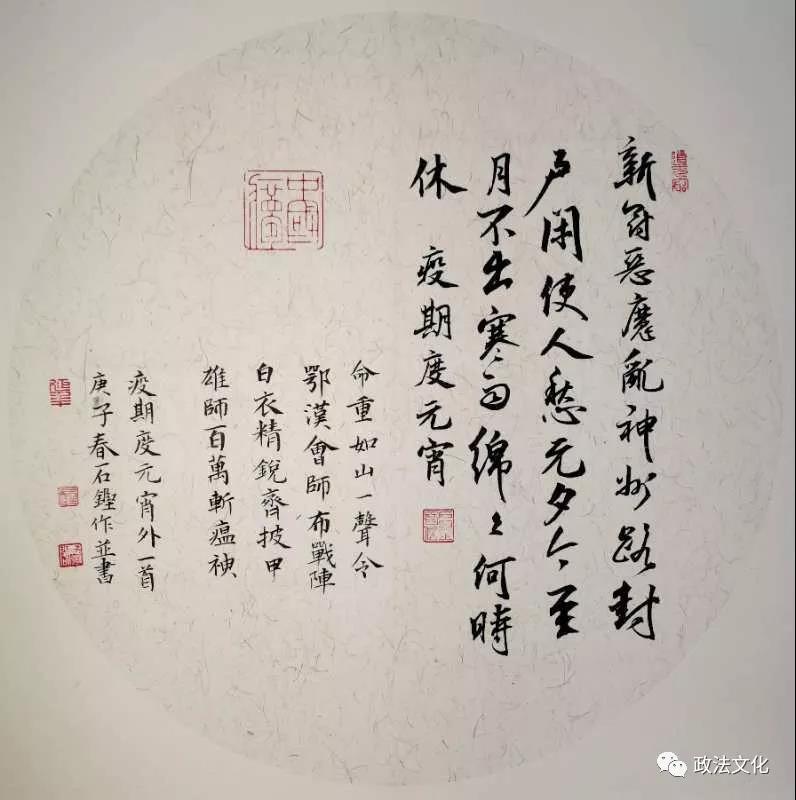 新冠惡魔亂神州路封
戶閑使人愁元夕今至
月不出寒雨綿々何時
休 疫期度元宵
命重如山一聲令
鄂漢會師布戰陣
白衣精銳齊披甲
雄師百萬斬瘟神
疫期度元宵外一首
庚子春石鏗作並書
政法文化